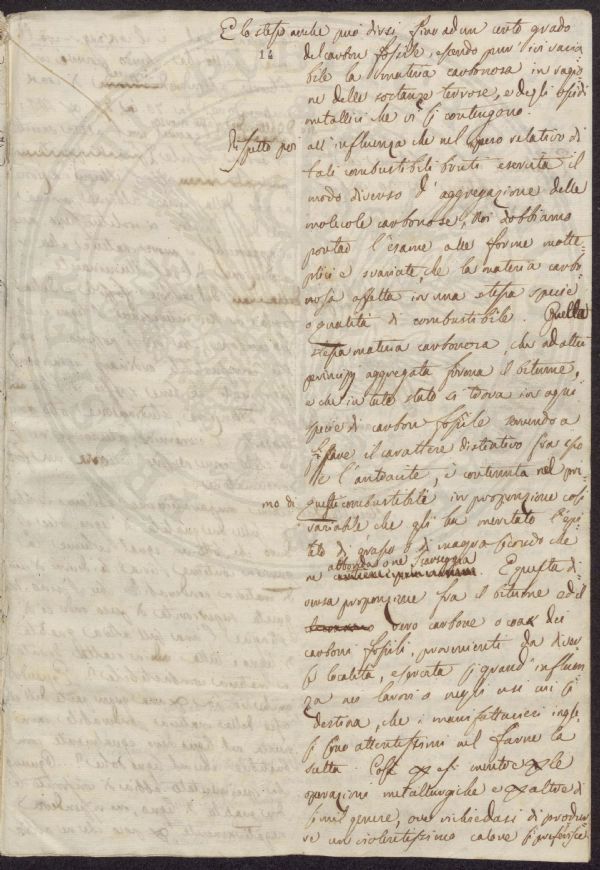 E lo stesso anche può dirsi fino ad un certo grado
14
del carbon fossile, essendo pur in
bile la materia carbonosa in ragio
ne delle sostanze terrose, e degli ossidi
metallici che vi si contengono.
Rispetto poi
all'influenza che nel peso relativo di
tali combustibili bruti esercita il
modo diverso d'aggregazione delle
molecole carbonose, Noi dobbiamo
portar l'esame alle forme molte
plici e svariate, che la materia carbo
nosa affetta in una stessa specie
o qualità di combustibile. Quella
stessa materia carbonosa, che ad altri
principj aggregata forma il bitume,
e che in tale stato si trova in ogni
specie di carbon fossile servendo a
fissare il carattere distintivo fra esso
e l'antracite, è contenuta nel pri
mo di
questi combustibili in proporzione così
variabile che gli ha meritato l'epi
teto di grasso o di magro secondo che
ne abbonda o ne scarseggia. E questa di
versa proporzione fra il bitume ed il
vero carbone o coak dei
carboni fossili, provenienti da diver
se località, esercita sì grand'influen
za nei lavori o negli usi cui si
destina, che i manifattureri ingle
si sono attentissimi nel farne la
scelta. Così le
operazioni metallurgiche e altre di
simil genere, ove richiedasi di produr
re un violentissimo calore si preferisce